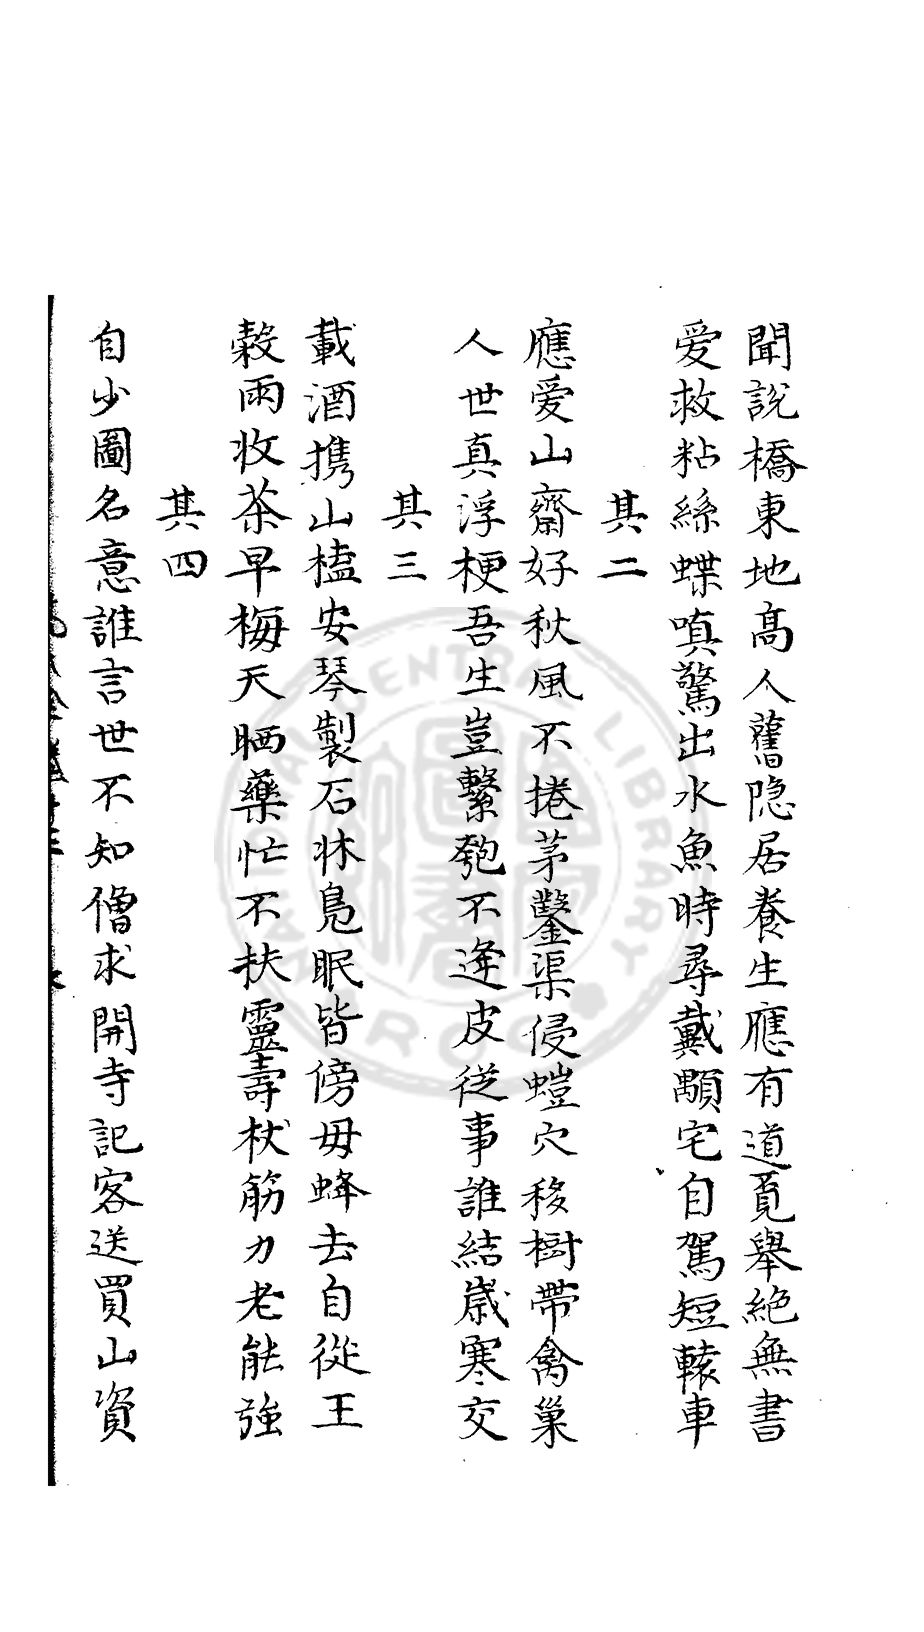 聞說橋東地高人舊隐居養生應有道覓舉絶無書
爱救粘絲蝶嗔驚出水魚時尋戴顒宅自駕短轅車
其二
應爱山齋好秋風不捲茅鑿渠侵螘穴移樹帶禽巢
人世真浮梗吾生豈繫匏不逢皮從事誰結歲寒交
其三
載酒携山榼安琴製石牀鳧眠皆傍母蜂去自從王
榖雨收茶早梅天晒藥忙不扶靈壽杖筋力老能強
其四
自少圖名意誰言世不知僧求開寺記客送買山資
NATIONAL CENTRAL LIBRARY R.O.C.